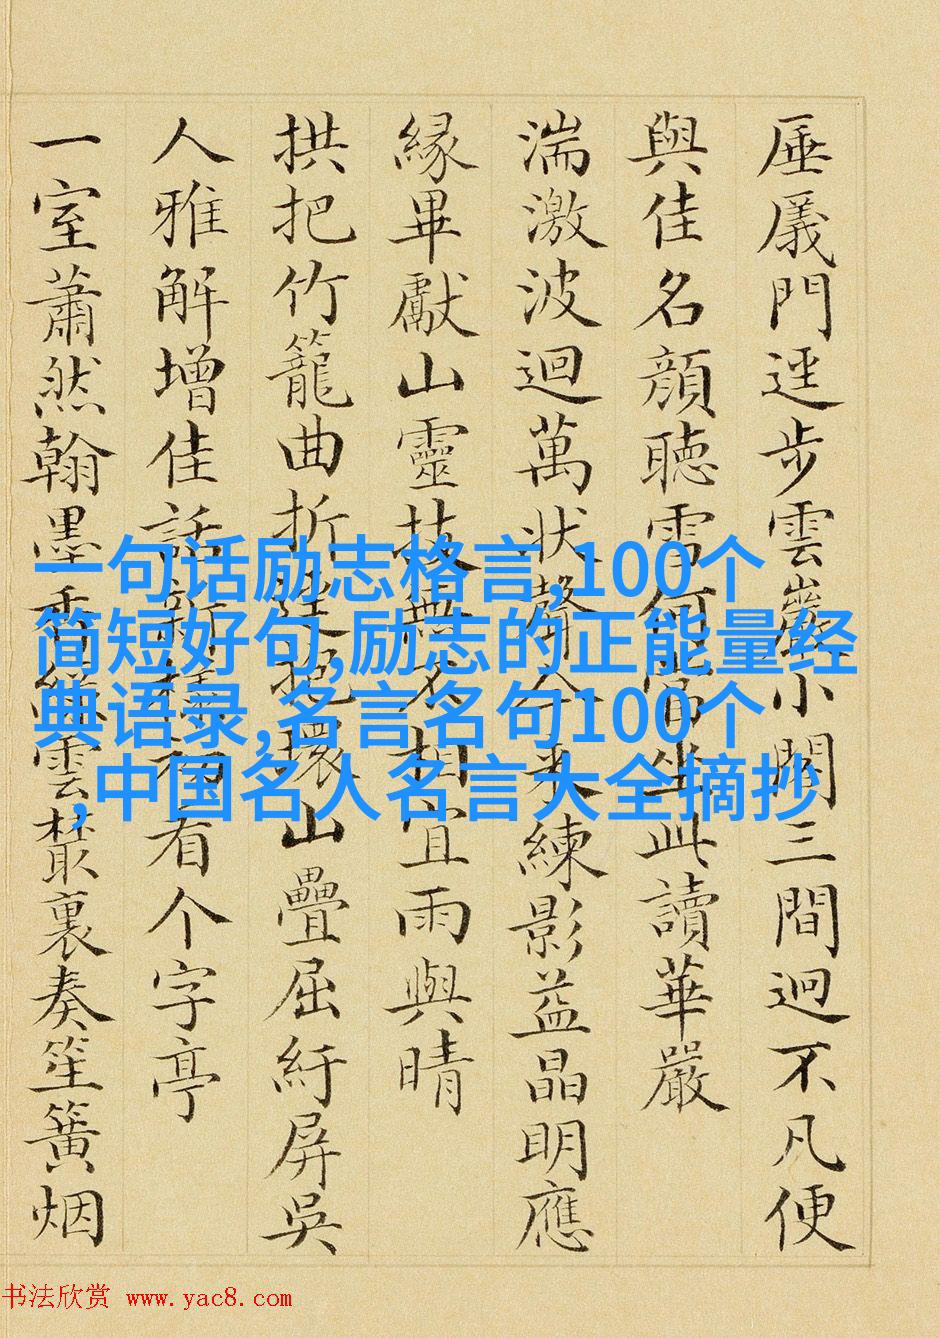 厜㕒門逕步雲巖小閣三間迥不凡便
與佳名顔聴雪何當坐此讀華嚴
湍激波迴萬状聲人来練影益晶明應
縁畢獻山靈技無不相宜雨與晴
拱把竹籠曲折挽環山疊屈紆屏吳
人雅解增佳話新樣初有个字亭
一室蕭然翰墨香雲裏奏笙簧烟
一句话励志格言,100个
简短好句,励志的正能量经
典语录,名言名句100个
,中国名人名言大全摘抄
书法欣赏 www.yac8.com